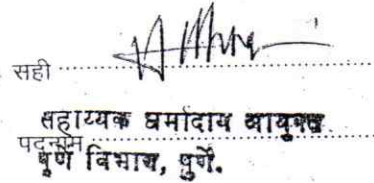 सही
सहाय्यक धर्मादाय आयुक्त
पदनाम
पुणे विभाग, पुणे.